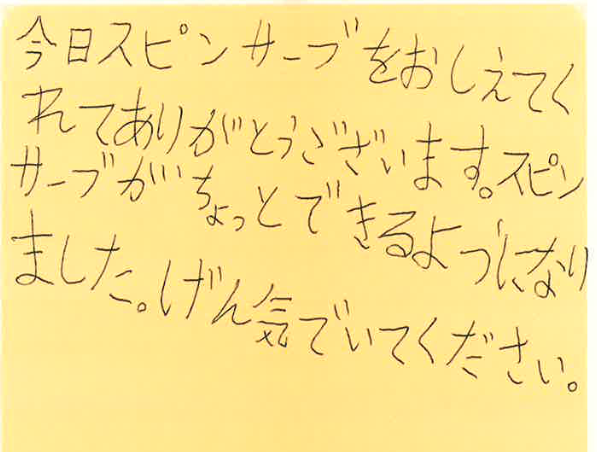 今日スピンサーブをおしえてく
れてありがとうございます。スピン
サーブがちょっとできるようになり
ました。げん気でいてください。